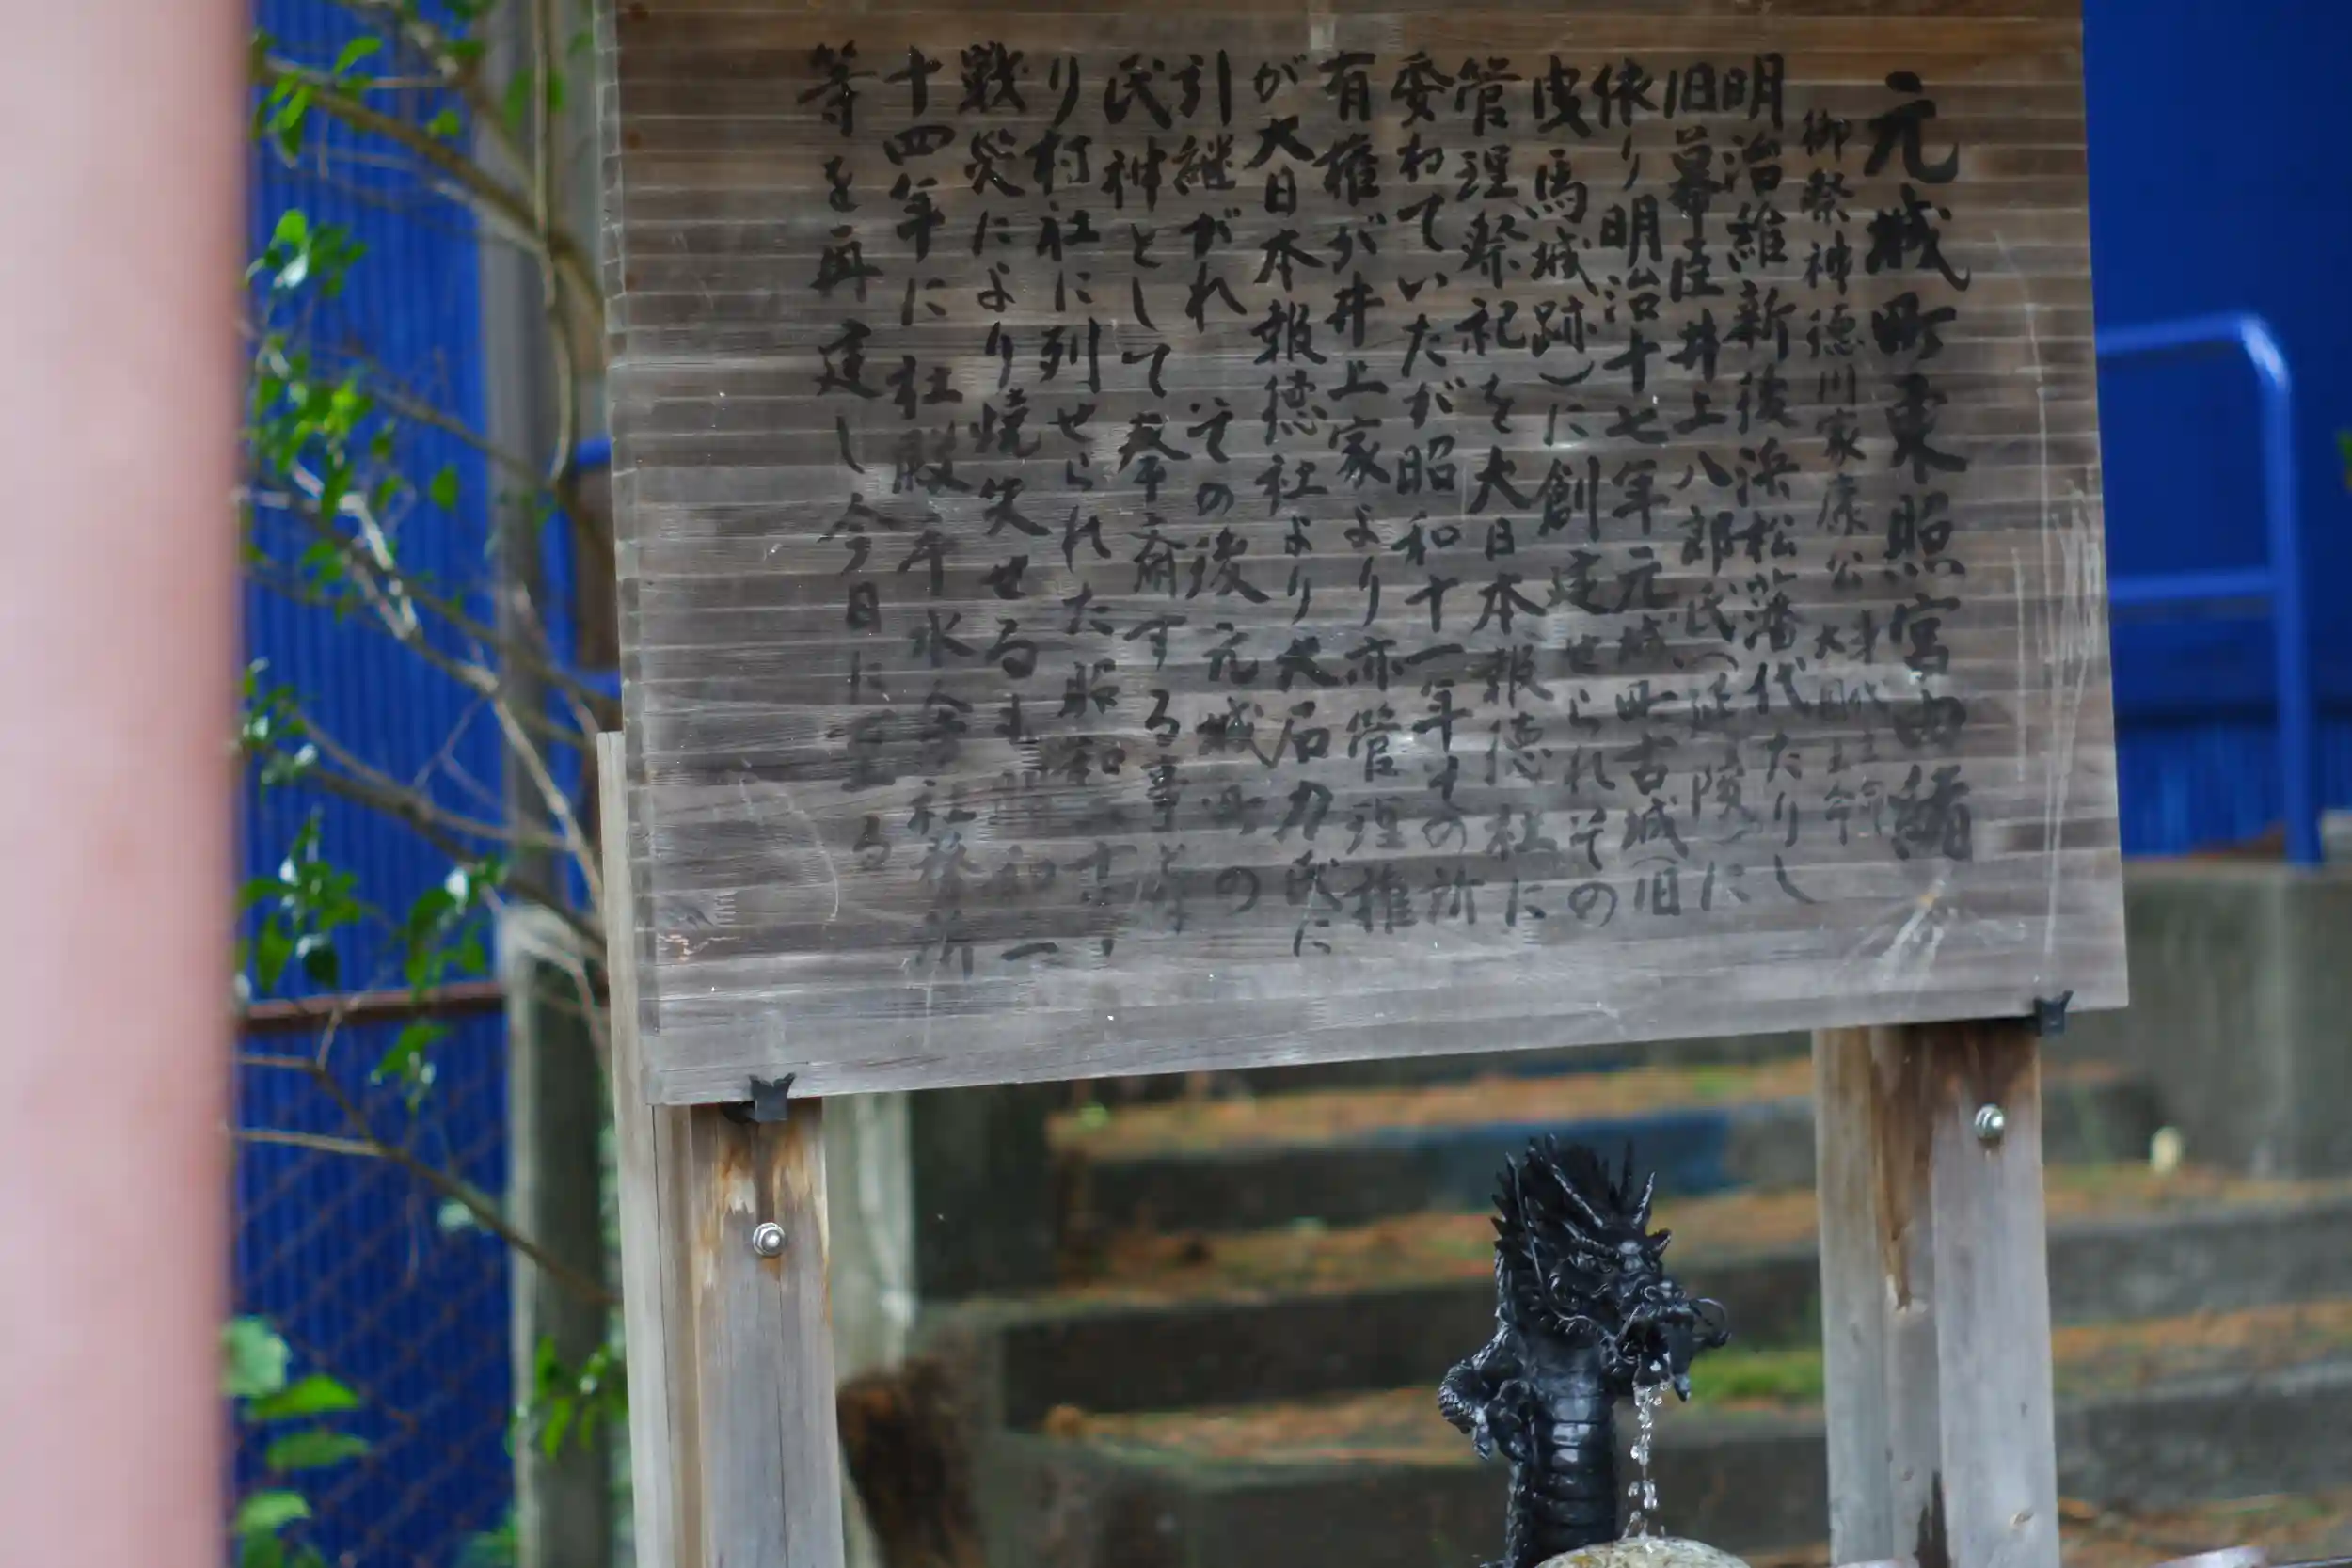 元城町東照宮由緒
御祭神徳川家康公
明治維新後浜松藩代たりし
旧幕臣井上八郎氏(に
依り明治十七年元城町古城(旧
曳馬城跡)に創建せられその
管理祭祀を大日本報徳社に
委ねていたが昭和十一年その所
有権が井上家より亦管理権
が大日本報徳社より大石力氏に
引継がれその後元城町の
氏神として奉斎する事と
り村社に列せられた昭和二十
戦災により焼失せるも昭和
十四年に社殿手水舎社務所
等を再建し今日に至る